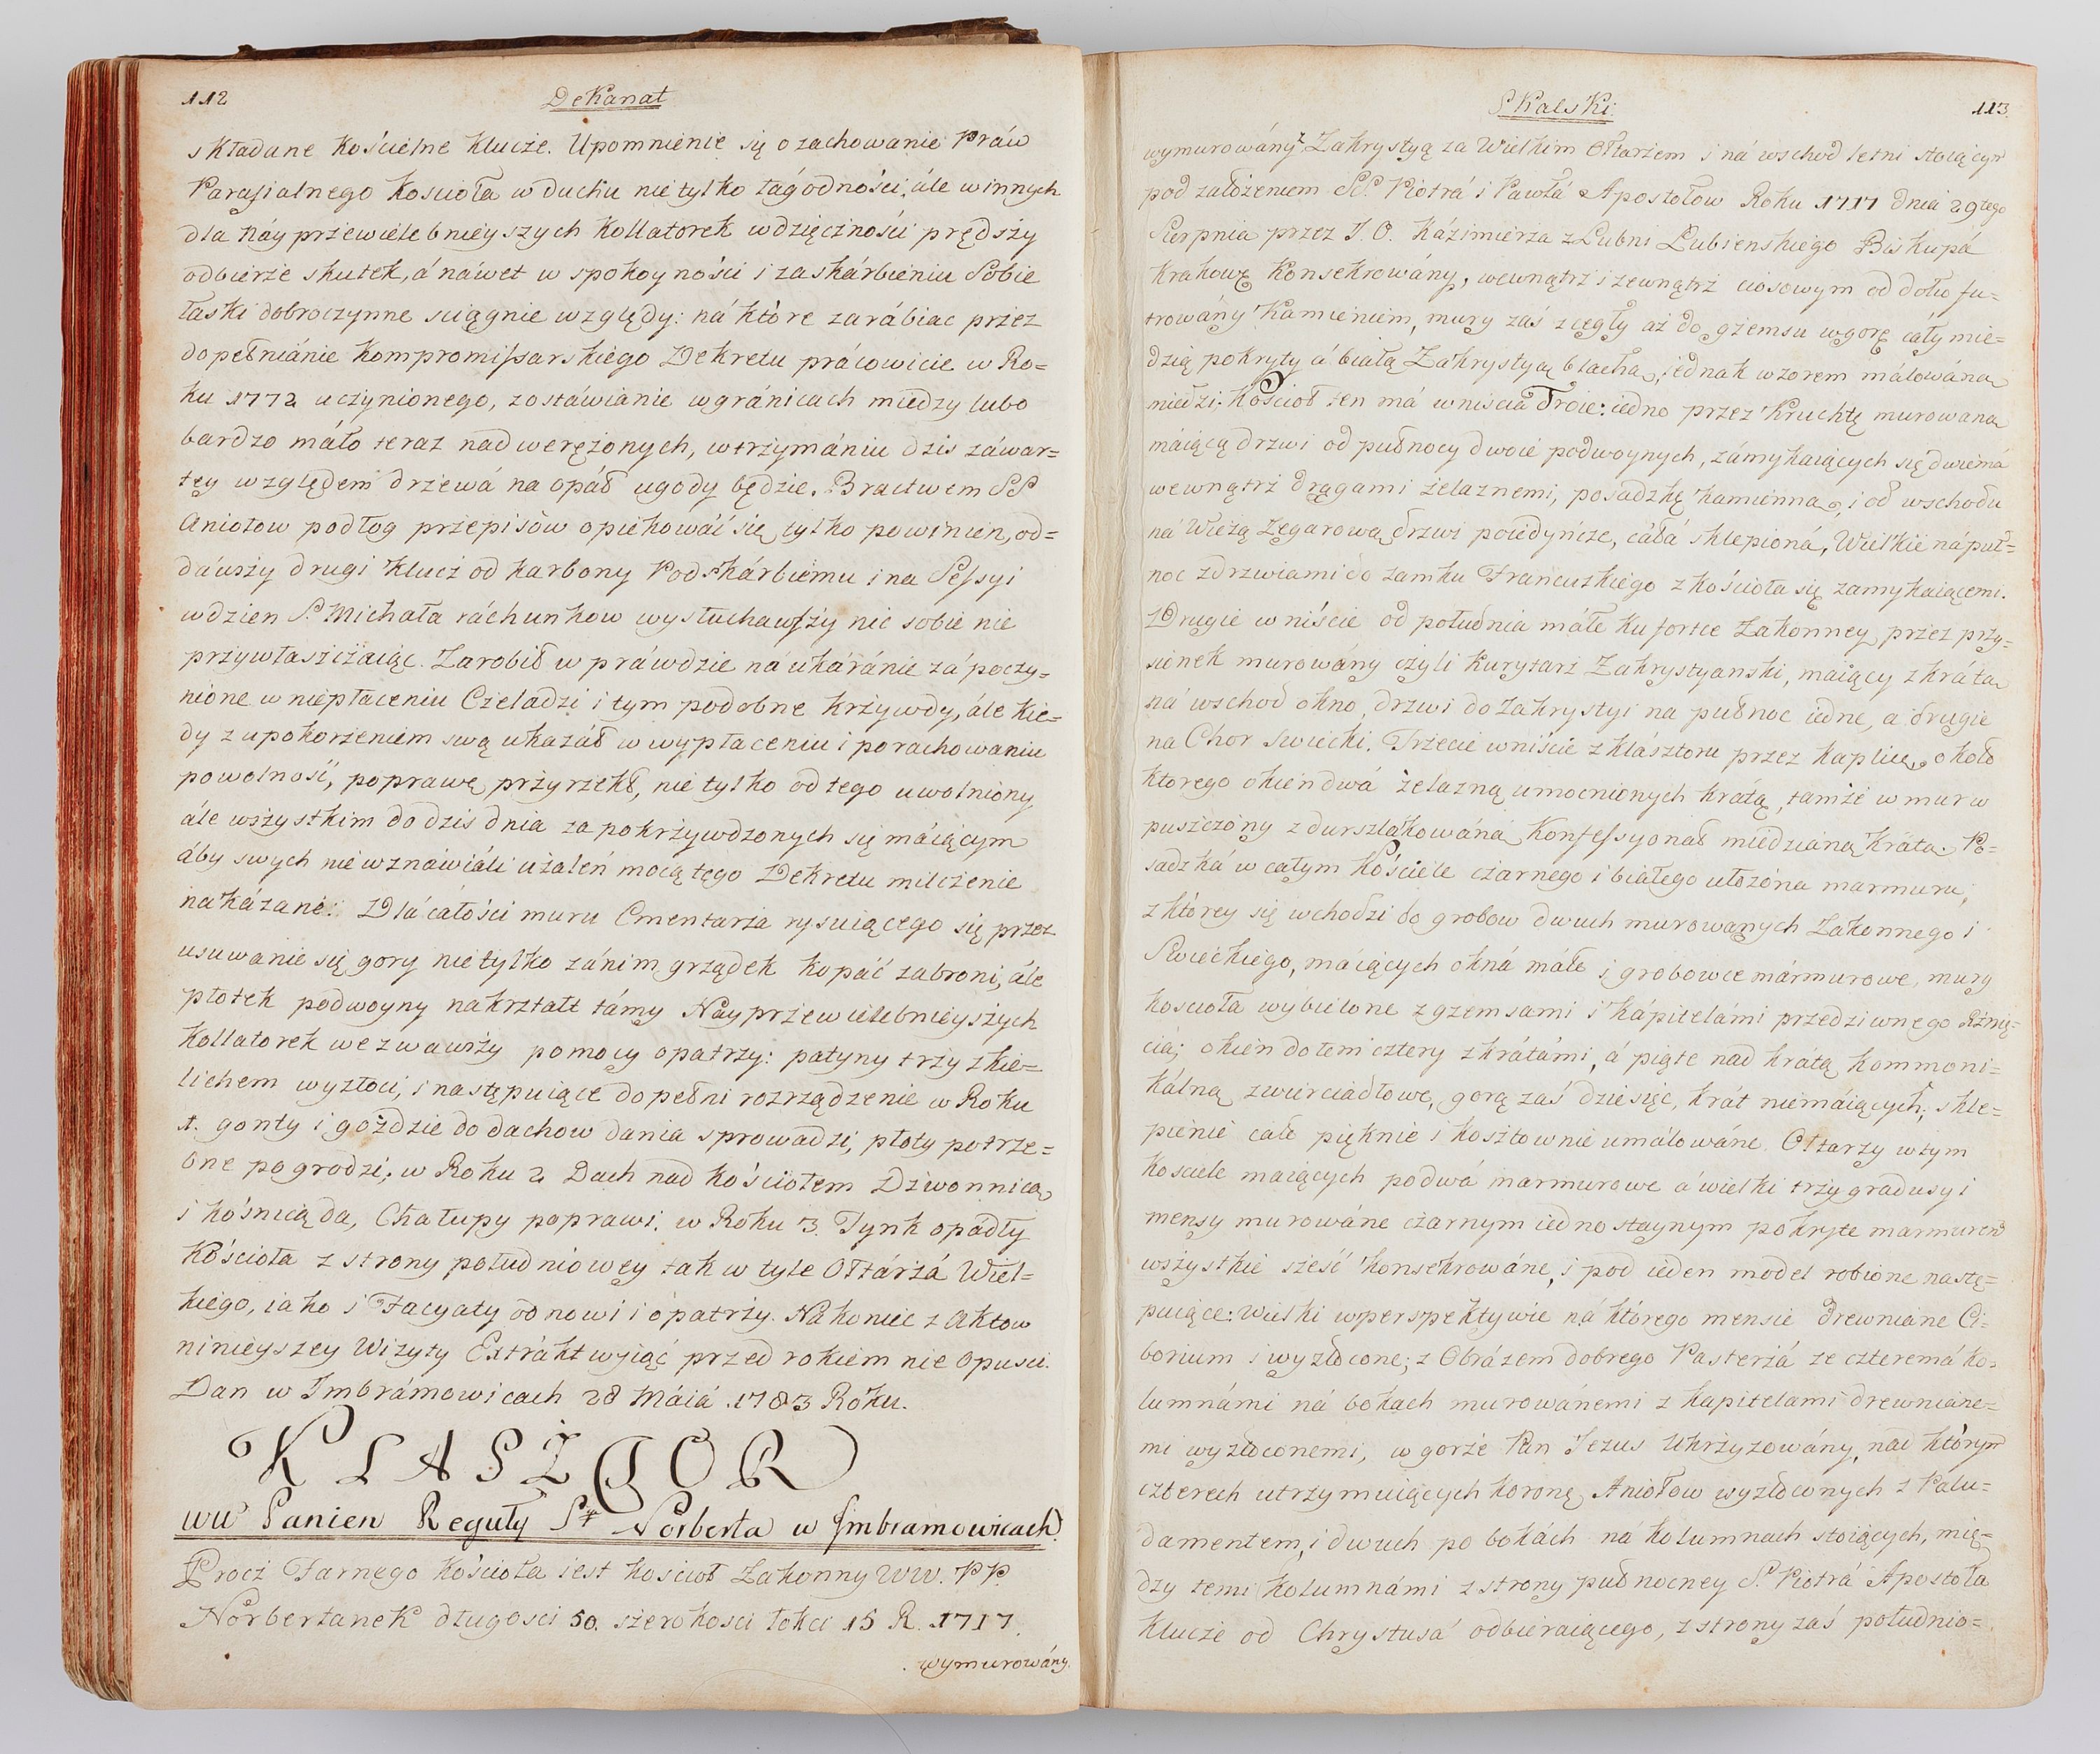 112
Dekanat
składane Kościelne Klucze. Upomnienie się o zachowanie Praw
Parafialnego Kościoła w duchu nie tylko łágodności, ále winnych
dla Náyprzewielebnieyszych Kollatorek wdzięczności prędszy
odbierze skutek, á náwet w spokoyności i zaskárbieniu Sobie
łaski dobroczynne sciągnie względy: ná które zarábiac przez
dopełniánie Kompromissarskiego Dekretu prácowicie w Ro=
ku 1772 uczynionego, zostáwianie w gránicach miedzy lubo
bardzo máło teraz nadwerężonych, w trzymániu dzis záwar=
tey względem drzewá na opáł ugody będzie. Bractwem SS
Aniołow podłog przepisów opiekować się tylko powinien, od=
dáwszy drugi Klucz od Karbony Podskárbiemu i na Sessyi
w dzien S. Michała ráchunkow wysłuchawszy nic sobie nie
przywłaszczaiąc. Zarobił w práwdzie ná ukáránie zá poczy=
nione w niepłaceniu Czeladzi i tym podobne Krzywdy, ále kie=
dy z upokorzeniem swą ukazáł w wypłaceniu i porachowaniu
powolność, poprawę przyrzekł, nie tylko od tego uwolniony
ále wszystkim do dzis dnia za pokrzywdzonych się máiącym
áby swych nie wznáwiáli użaleń mocą tego Dekretu milczenie
nakázane. Dlá całości muru Cmentarza rysuiącego się przez
usuwanie się gory nie tylko zánim grządek kopáć zabroni, ále
płotek podwoyny nakrztałt támy Nayprzewielebnieyszych
Kollatorek wezwawszy pomocy opatrzy: patyny trzy z kie=
lichem wyzłoci, i następuiące dopełni rozrządzenie w Roku
1. gonty i goździe do dachow dania sprowadzi, płoty potrze=
one pogrodzi; w Roku 2 Dach nad Kościołem Dzwonnicą
i kośnicą da, Chałupy poprawi. w Roku 3. Tynk opádły
Kościoła z strony południowey tak w tyle Ołtárzá Wiel=
kiego, iako i Facyaty odnowi i opatrzy. Nakoniec z Aktow
ninieyszey Wizyty Extrákt wyiąć przed rokiem nie opusci.
Dan w Imbrámowicach 28 Máiá 1783 Roku.
KLASZTOR
WW Panien Reguły S° Norberta w Imbramowicach.
Procz Farnego Kościoła iest kościoł Zakonny WW. PP.
Norbertanek długosci 50. szerokosci łokci 15 R. 1717.
wymurowány
Skalski.
113.
wymurowány z Zakrystyą za Wielkim Ołtarzem i ná wschod letni stoiącym
pod założeniem SS. Piotrá i Pawłá Apostołow Roku 1717 dnia 29tego
Sierpnia przez J. O. Káźimierza z Lubni Łubienskiego Biskupá
Krakowę Konsekrowány, wewnątrz i zewnątrz ciosowym od dołu fu=
trowány Kamieniem, mury zaś z cegły aż do gzemsu w gorę cáły mie=
dzią pokryty á białą Zakrystyą blachą, iednak wzorem málowáną
miedzi; Kościoł ten má wniscia Troie: iedno przez Kruchtę murowaną
máiącą drzwi od pułnocy dwoie podwoynych, zámykaiących się dwiemá
wewnątrz drągami żelaznemi, posadzkę kamienną, i od wschodu
ná Wieżą Zegarową drzwi poiedyńcze, cáłá sklepioná, Wielkie ná puł=
noc z drzwiami do zamku Francuzkiego z kościoła się zamykaiącemi.
Drugie wniście od południa máłe ku fortce Zakonney przez przy=
sionek murowány czyli Kurytarz Zakrystyanski, maiący z krátą
ná wschod okno, drzwi do Zakrystyi na pułnoc iedne, a drugie
na Chor swiecki. Trzecie wniście z klásztoru przez kaplicę, około
ktorego okien dwá żelazną umocnionych krátą, tamże w mur w
puszczony z durszlákowáną Konfessyonał miedzianą Krátą. Po=
sadzká w całym Kościele czarnego i białego ułożóna marmuru,
z ktorey się wchodzi do grobow dwuch murowanych Zakonnego i
Swieckiego, maiących okná máłe i grobowce mármurowe, mury
kościoła wybielone z gzemsami i Kápitelámi przedziwnego Rżnię=
ciá; okien dołem cztery z krátámi, á piąte nad krátą kommoni=
kálną zwierciadłowe, gorą zaś dziesięć, krát niemáiących; skle=
pienie całe pięknie i kosztownie umálowáne. Ołtarzy w tym
kościele maiących po dwá marmurowe á wielki trzy gradusy i
mensy murowáne czarnym iednostaynym pokryte marmurem
wszystkie sześć konsekrowáne, i pod ieden model robione nastę=
puiące: Wielki w perspektywie ná którego mensie drewniane Ci=
borium i wyzłocone; z Obrázem dobrego Pasterzá ze czteremá ko=
lumnámi ná bokach murowánemi z kapitelami drewniane=
mi wyzłoconemi, w gorze Pan Jezus Ukrzyzowány, nad którym
czterech utrzymuiących koronę Aniołow wyzłoconych z Palu=
damentem, i dwuch po bokách ná kolumnach stoiących, mię=
dzy temi kolumnámi z strony pułnocney S. Piotrá Apostoła
klucze od Chrystusá odbieraiącego, z strony zaś południo=